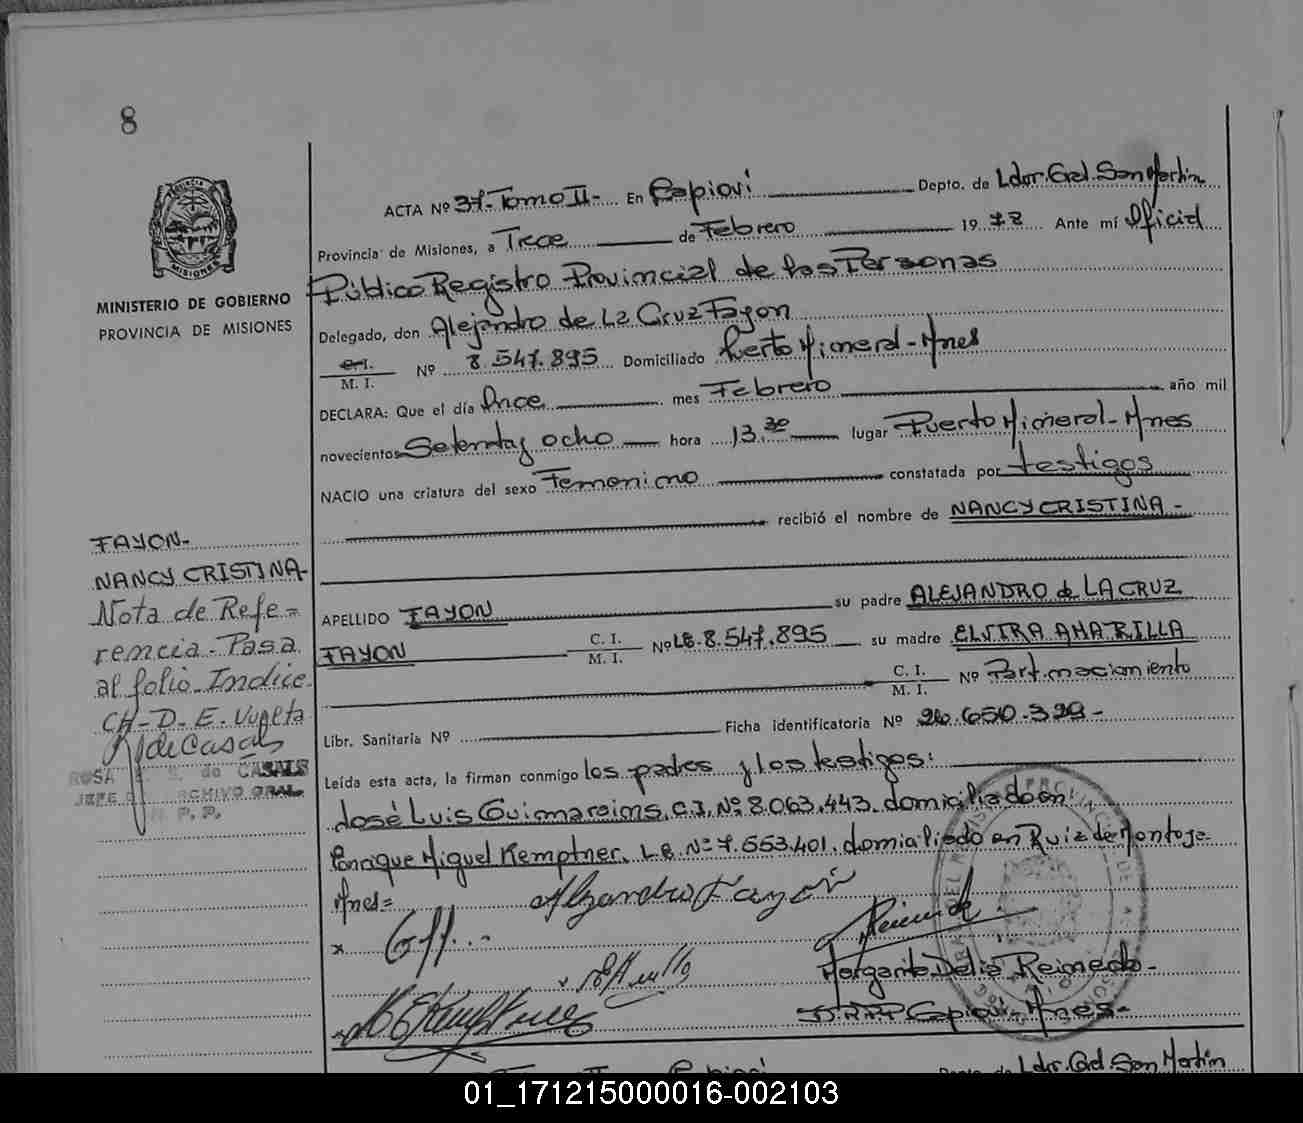 8
MINISTERIO DE GOBIERNO
PROVINCIA DE MISIONES
ACTA Nº 37-Tomo II- En Capioví Depto. de Ldor. Gral. San Martín
Provincia de Misiones, a Trece de Febrero 1978 Ante mí Oficial
Público Registro Provincial de las Personas
Delegado, don Alejandro de La Cruz Fayon
M. I. Nº 8.547.895 Domiciliado Puerto Mineral-Mnes
DECLARA: Que el día Once mes Febrero año mil
novecientos Setentay ocho hora 13.30 lugar Puerto Mineral-Mnes
NACIO una criatura del sexo Femenino constatada por testigos
recibió el nombre de NANCY CRISTINA-
FAYON-
NANCY CRISTINA-
Nota de Refe=
rencia-Pasa
al folio Indice
CH-D-E-Vuelta
RdeCasals
ROSA de CASALS
JEFE ARCHIVO GRAL.
R. P. P.
APELLIDO FAYON su padre ALEJANDRO de LA CRUZ
FAYON C. I. M. I. Nº LE.8.547.895 su madre ELVIRA AMARILLA
C. I. M. I. Nº Part.nacimiento
Libr. Sanitaria Nº Ficha identificatoria Nº 26.650.329-
Leída esta acta, la firman conmigo los padres y los testigos:
José Luis Guimaraims, C.I. Nº 8.063.443. domiciliado en
Enrique Miguel Kemptner. L.E. Nº 7.553.401. domiciliado en Ruiz de Montoya-
Mnes=
Alejandro Fayon
Margarita Delia Reinedo-
Capioví-Mnes-
Capioví Depto. de Ldor. Gral. San Martín
01_171215000016-002103